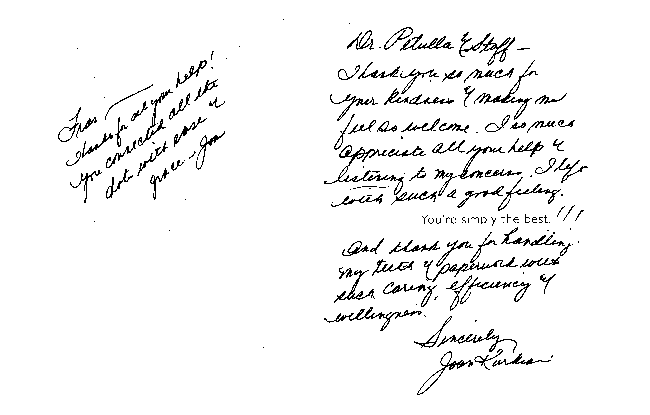 Fran —
thanks for all your help!
you connected all the
dots with ease &
grace — Joan
Dr. Petulla & Staff —
Thank you so much for
your kindness & making me
feel so welcome. I so much
appreciate all your help &
listening to my concerns. I left
with such a good feeling.
You're simply the best. !!!
And thank you for handling
my tests & paperwork with
such caring, efficiency &
willingness.
Sincerely
Joan